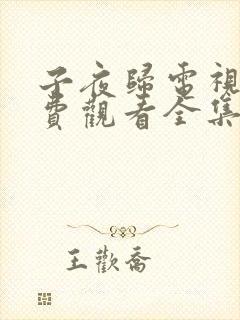 子夜歸電視
費觀看全集
王歡喬